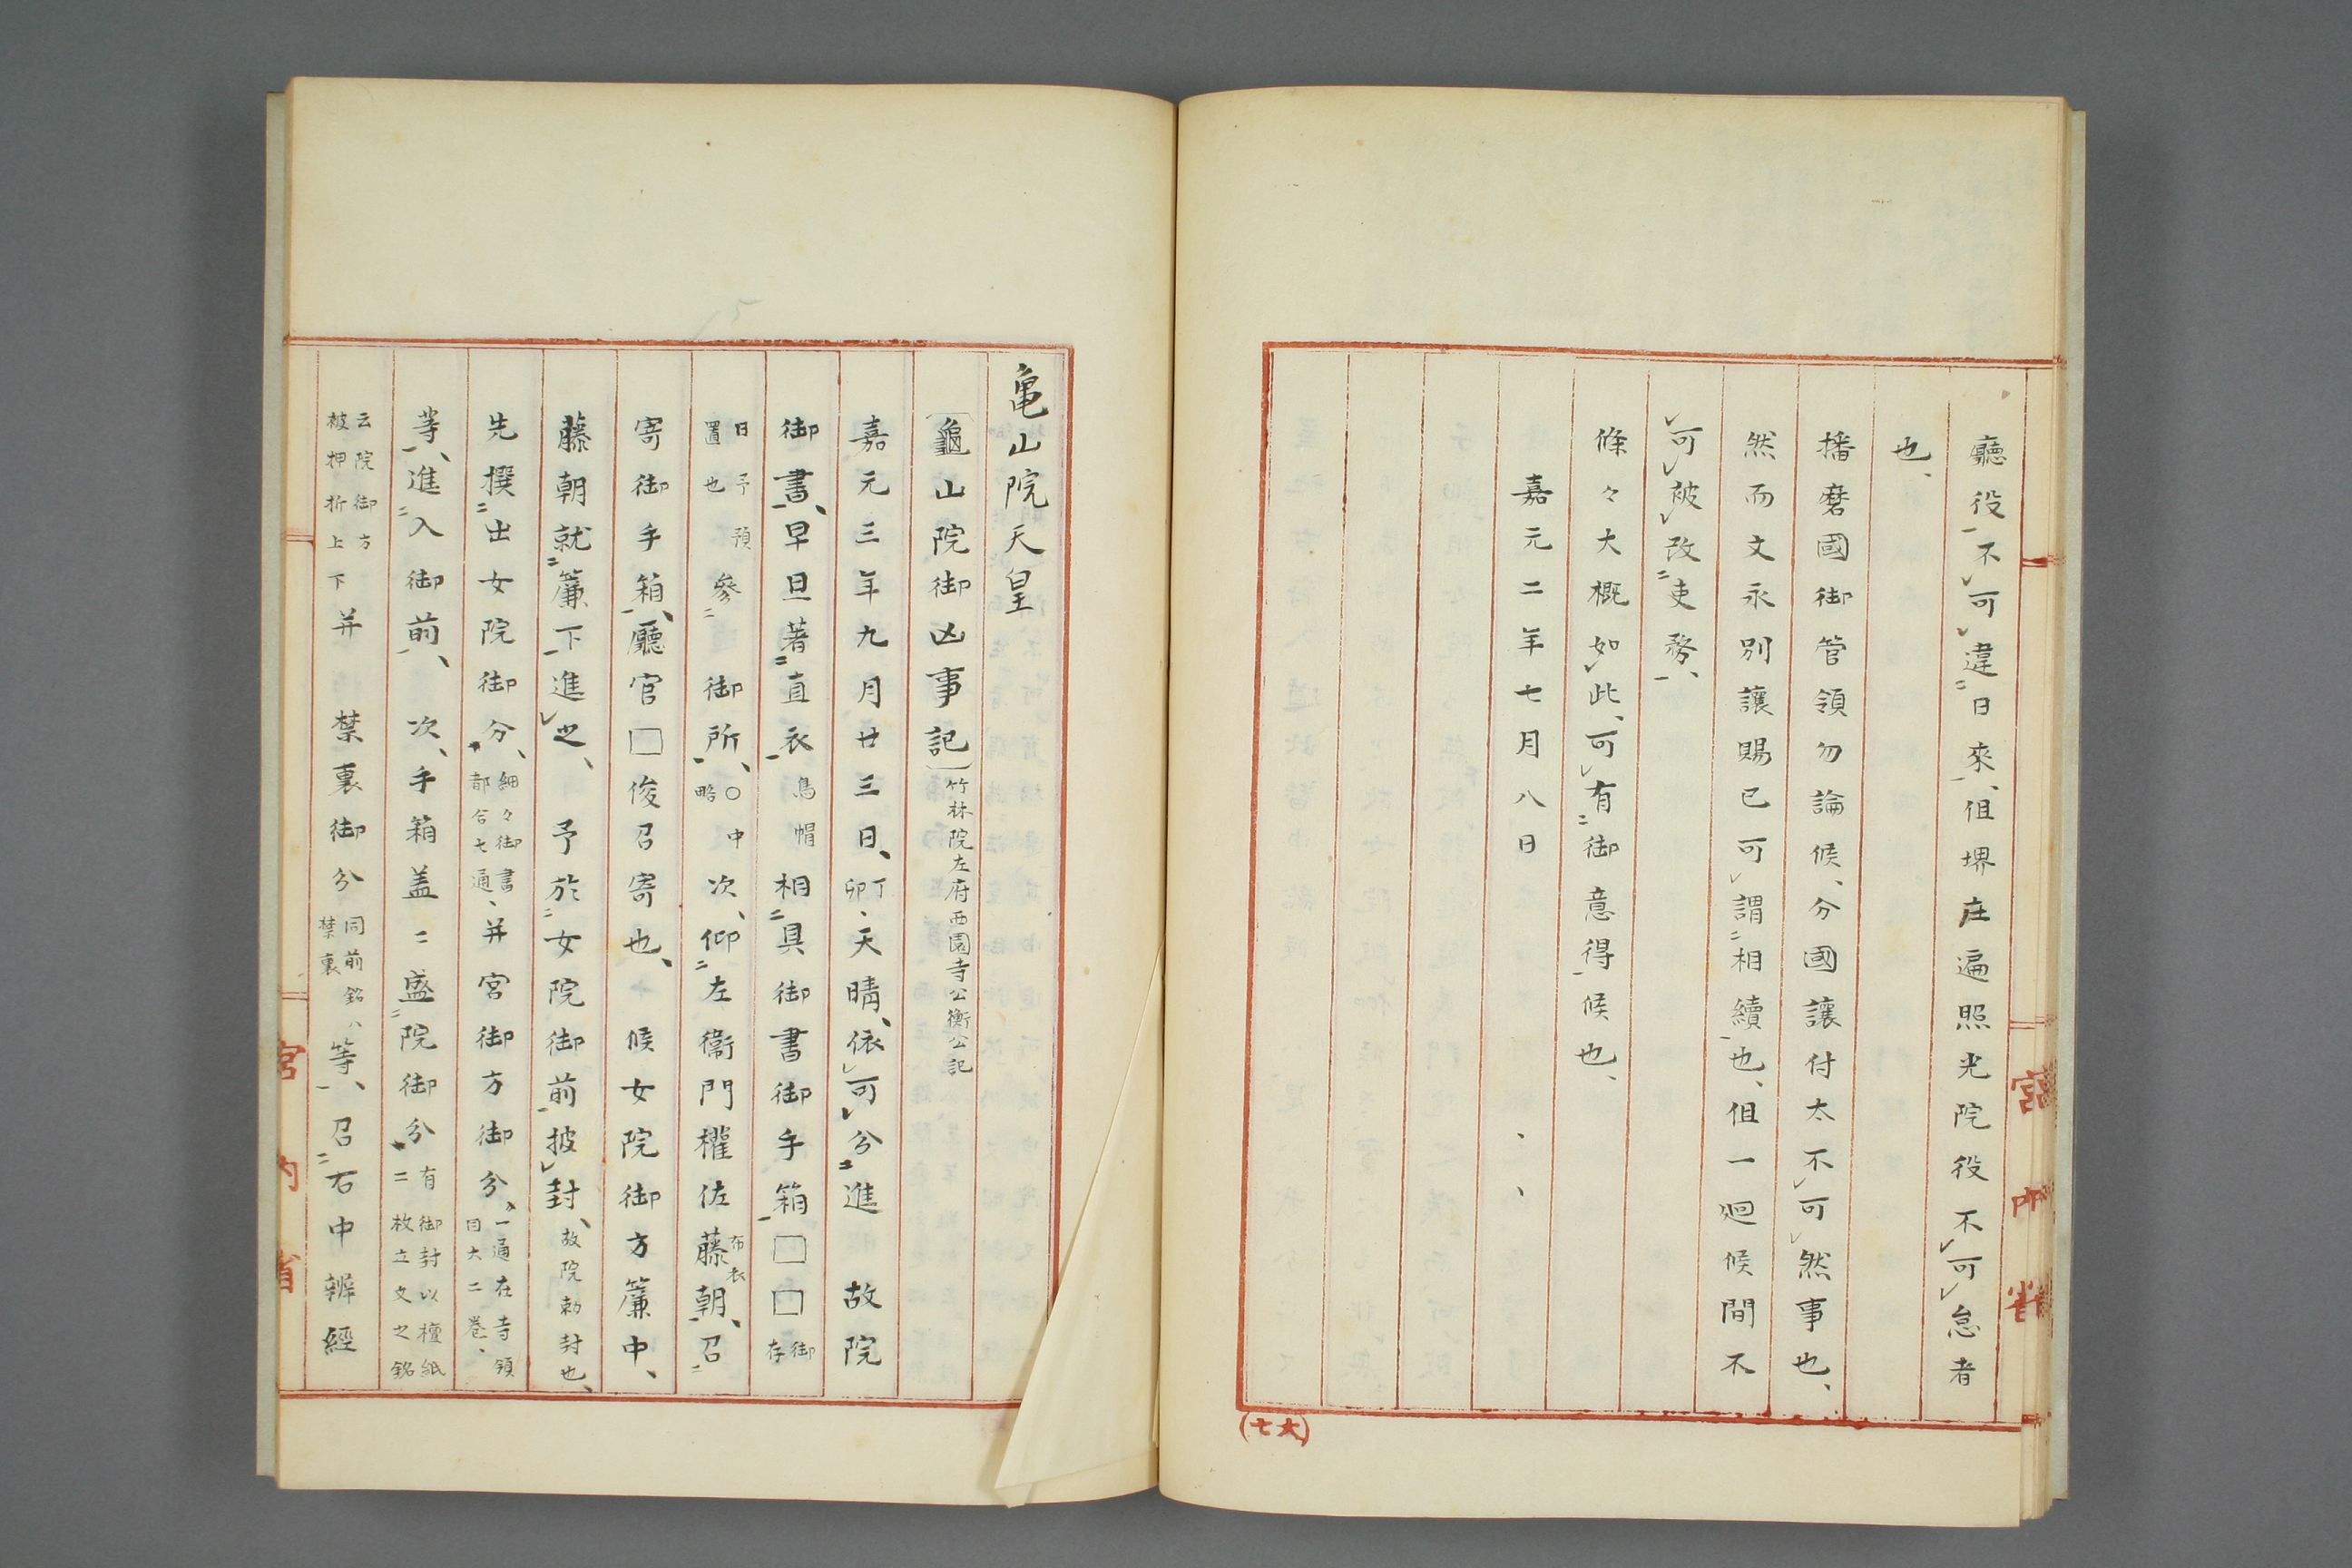 廳役、不可違日來、但堺庄遍照光院役不可怠者
也、
播磨國御管領勿論候、分國讓付太不可然事也、
然而文永別讓賜已可謂相續也、但一廻候間不
可被改吏務、
條々大概如此、可有御意得候也、
嘉元二年七月八日
(七大)
宮内省
亀山院天皇
〔龜山院御凶事記〕竹林院左府西園寺公衡公記
嘉元三年九月廿三日、丁卯、天晴、依可分進故院
御書、早旦著直衣烏帽相具御書御手箱□□御存
日予預置也參御所、○中略次、仰左衞門權佐藤朝、布衣召
寄御手箱、廳官□俊召寄也、候女院御方簾中、
藤朝就簾下進之、予於女院御前披封、故院勅封也、
先撰出女院御分、細々御書都合七通、并宮御方御分、一通在寺領目六二卷、
等、進入御前、次、手箱盖ニ盛院御分有御封以檀紙二枚立文之銘
云院御方被押折上下并禁裏御分同前銘ハ禁裏等、召右中辨經
宮内省